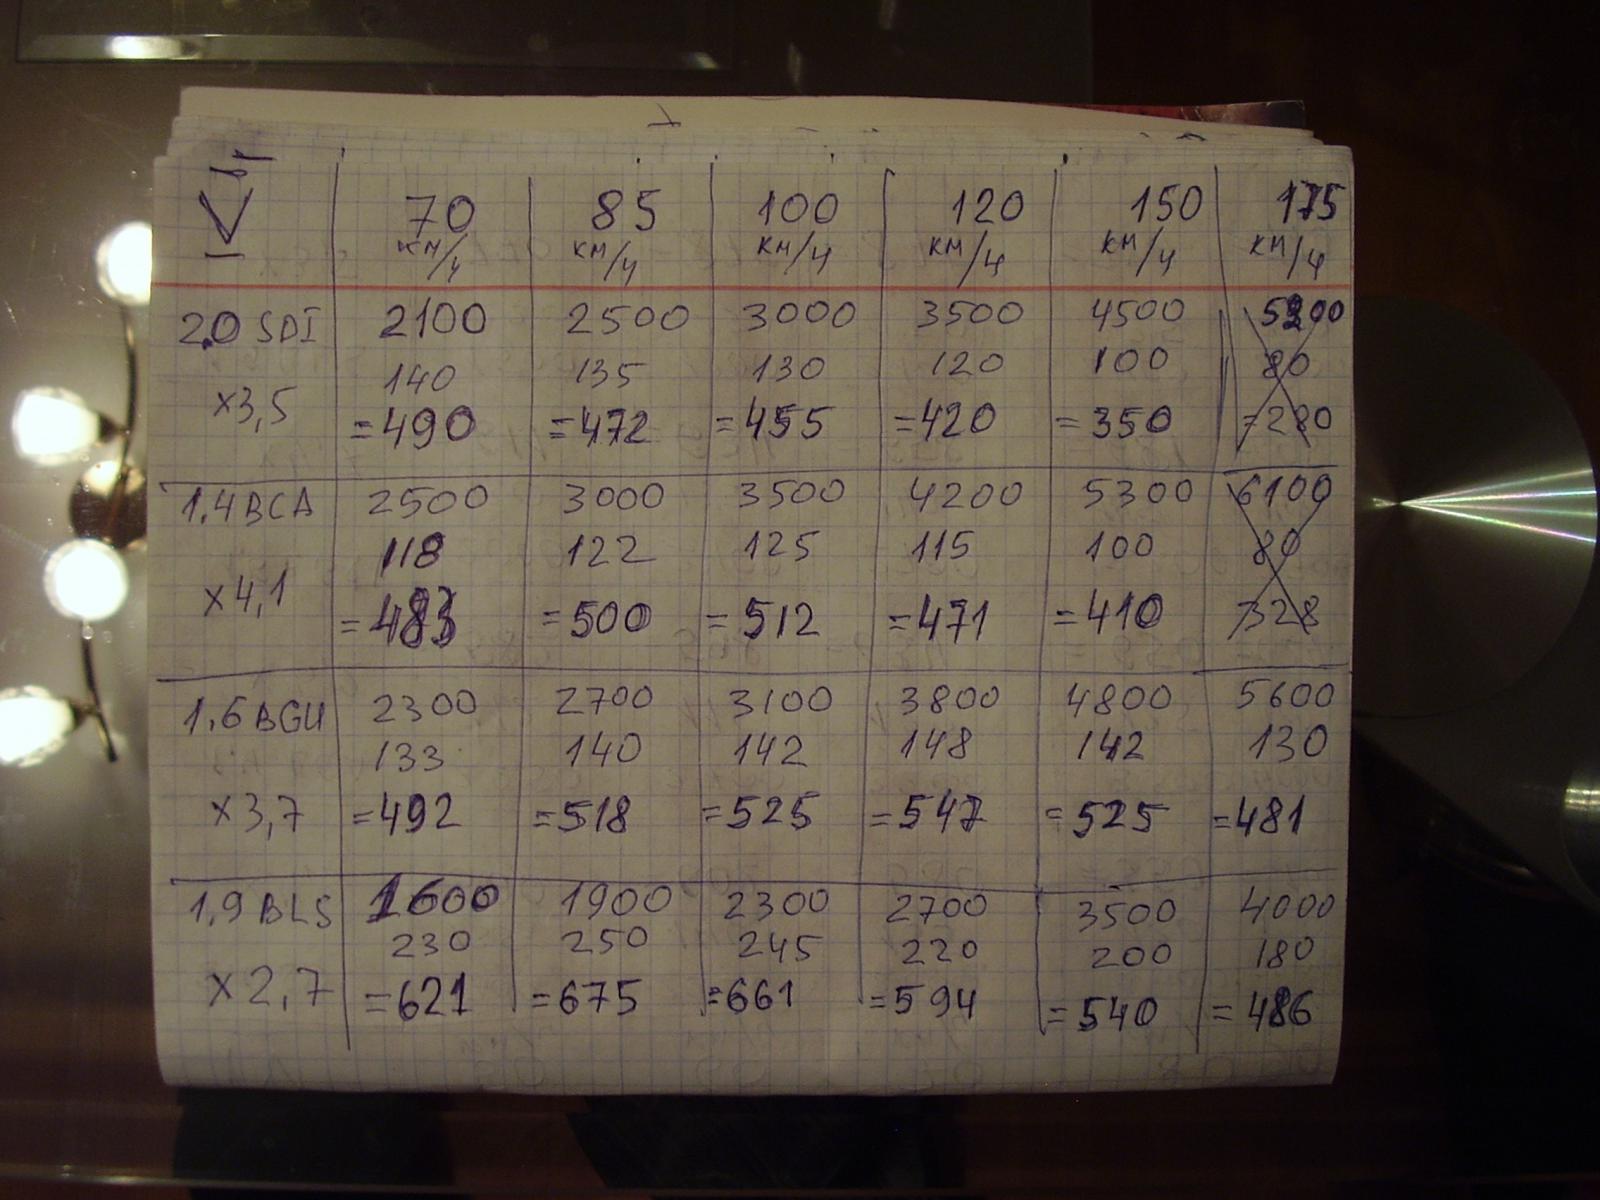 IV
70 85 100 120 150 175
км/ч км/ч км/ч км/ч км/ч км/ч
2,0 SDI 2100 2500 3000 3500 4500 5200
140 135 130 120 100 80
x3,5 =490 =472 =455 =420 =350 =280
1,4 BCA 2500 3000 3500 4200 5300 6100
118 122 125 115 100 80
x4,1 =483 =500 =512 =471 =410 328
1,6 BGU 2300 2700 3100 3800 4800 5600
133 140 142 148 142 130
x3,7 =492 =518 =525 =547 =525 =481
1,9 BLS 1600 1900 2300 2700 3500 4000
230 250 245 220 200 180
x2,7 =621 =675 =661 =594 =540 =486